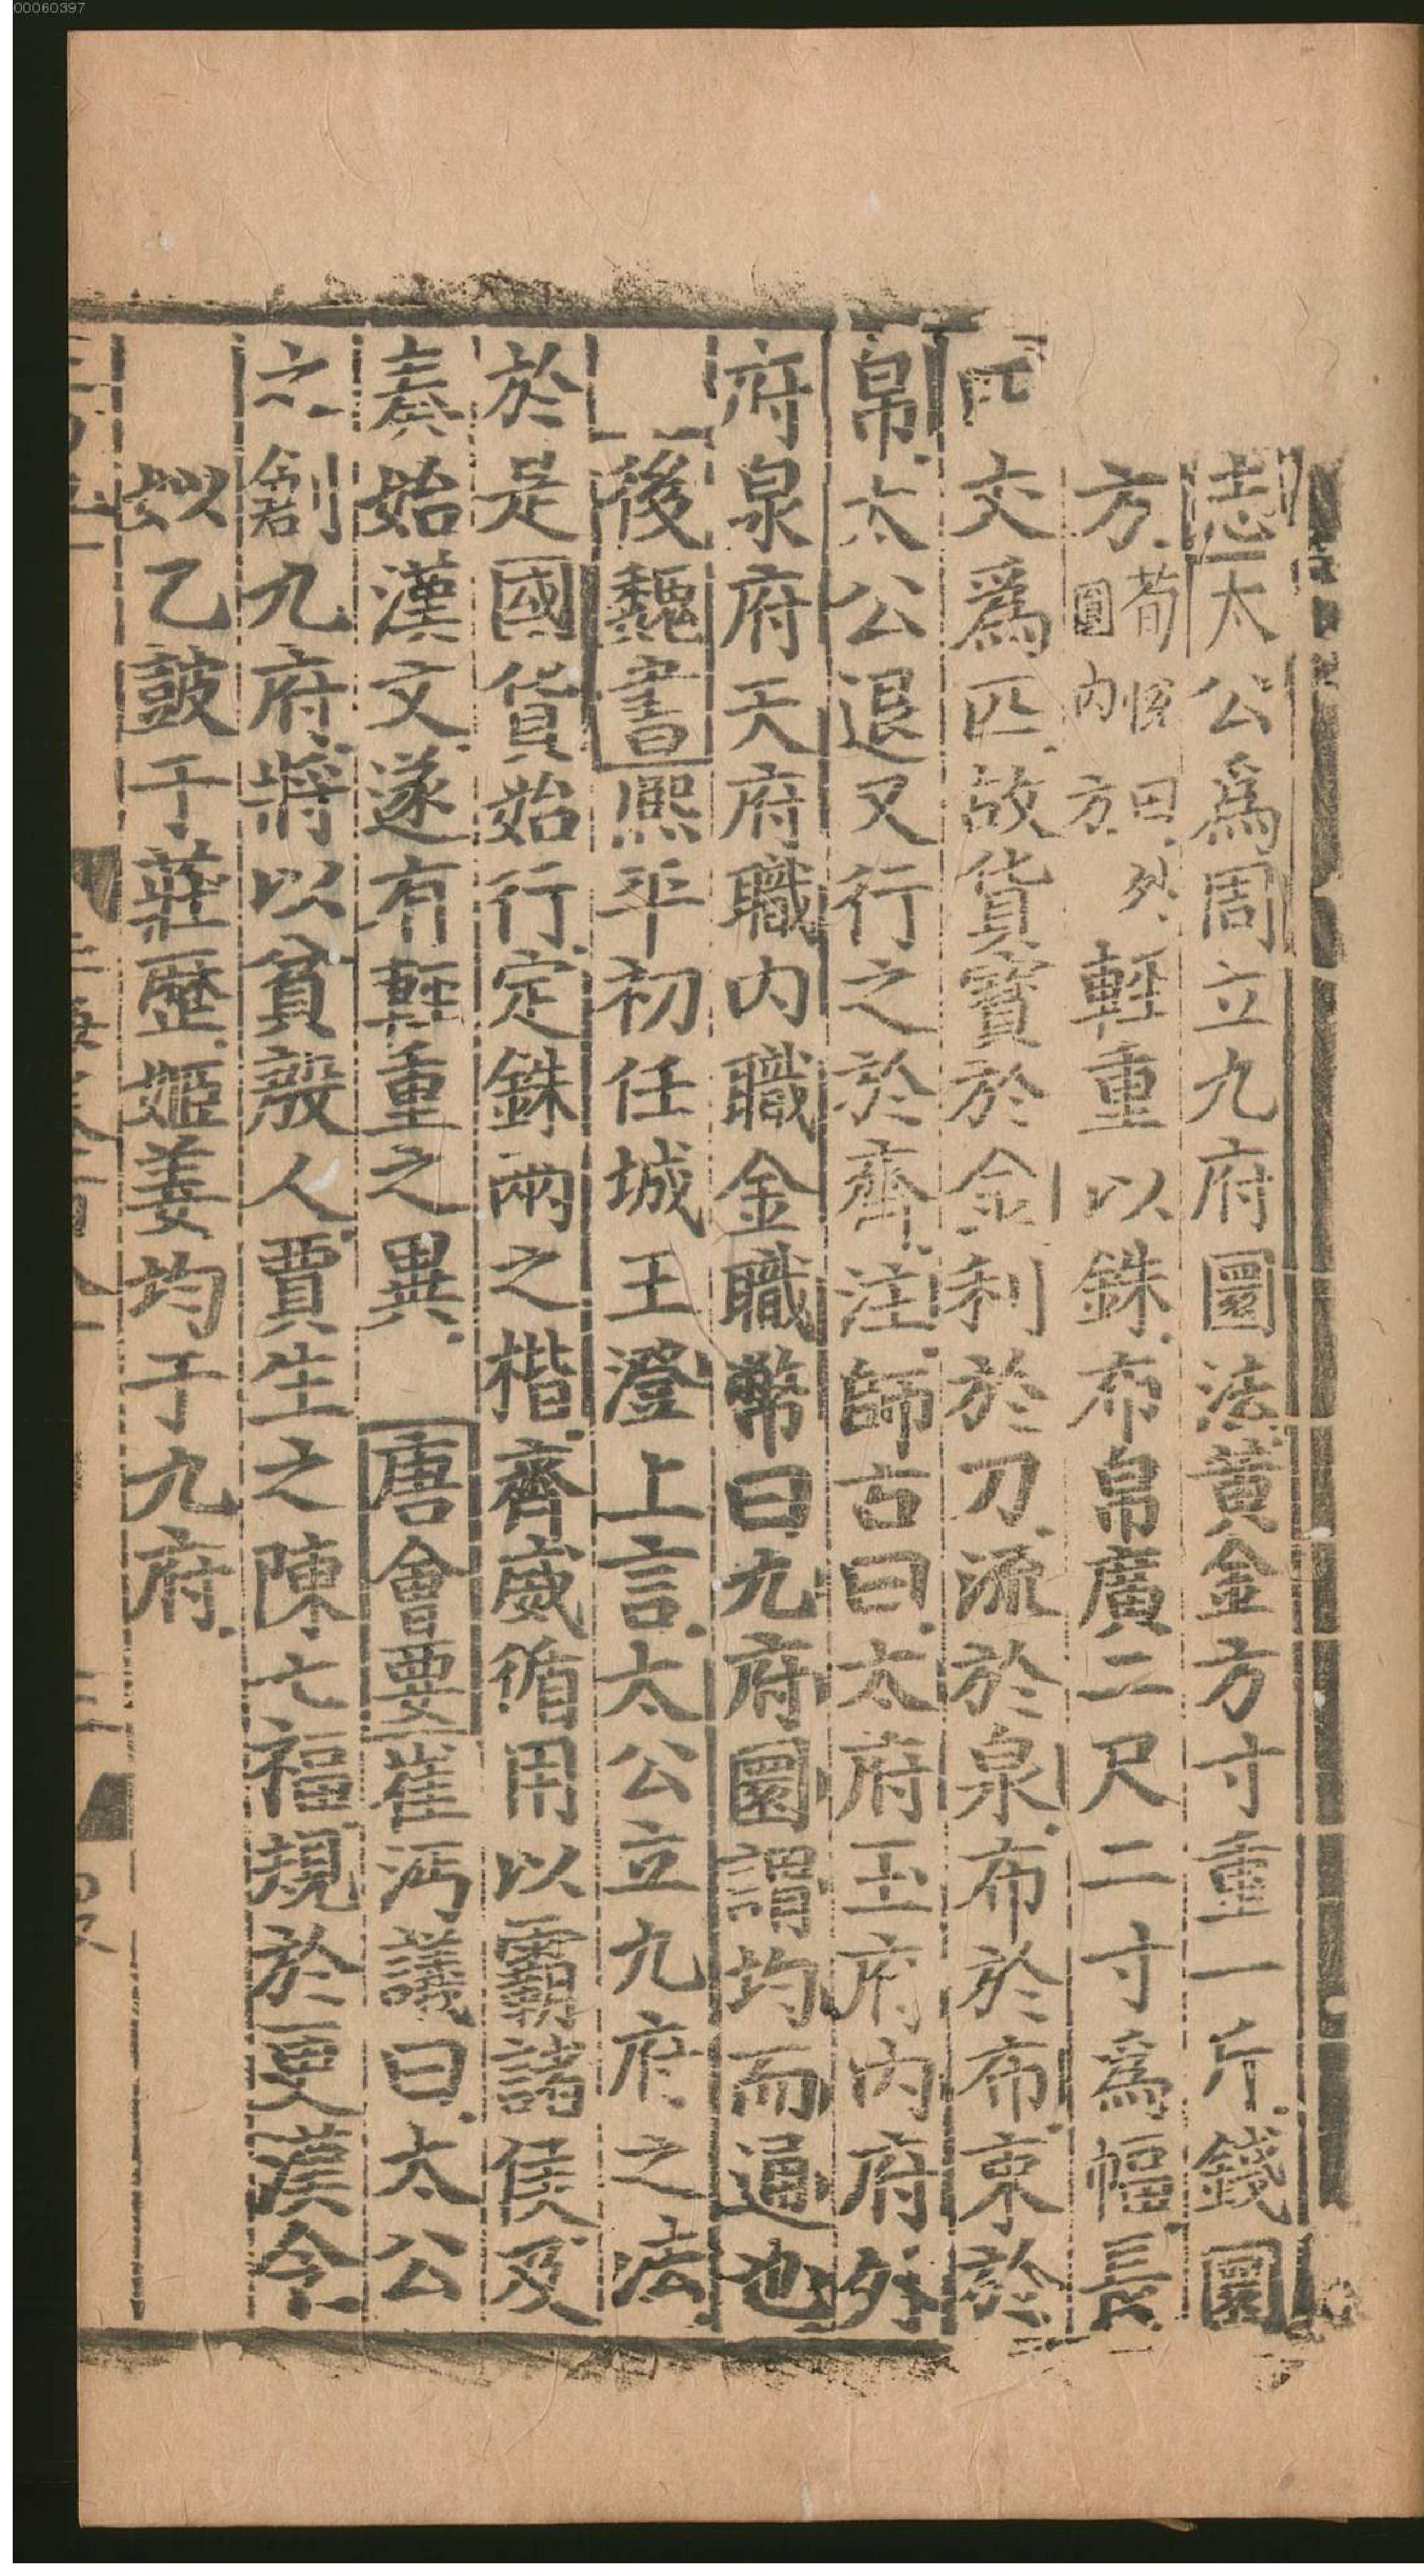 00060397
志太公爲周立九府圜法黄金方寸重一斤錢圜
方荀悅曰外圓內方輕重以銖布帛廣二尺二寸爲幅長
交爲匹故貨寶於金利於刀流於泉布於布束於
帛太公退又行之於齊注師古曰太府玉府內府外
府泉府天府職內職金職幣曰九府圜謂均而通也
後魏書熙平初任城王澄上言太公立九府之法
於是國貨始行定銖兩之楷齊威循用以霸諸侯及
秦始漢文遂有輕重之異 唐會要崔沔議曰太公
之創九府將以貧殷人賈生之陳七福規於更漢令
以乙鼓于莊歷姬姜均于九府